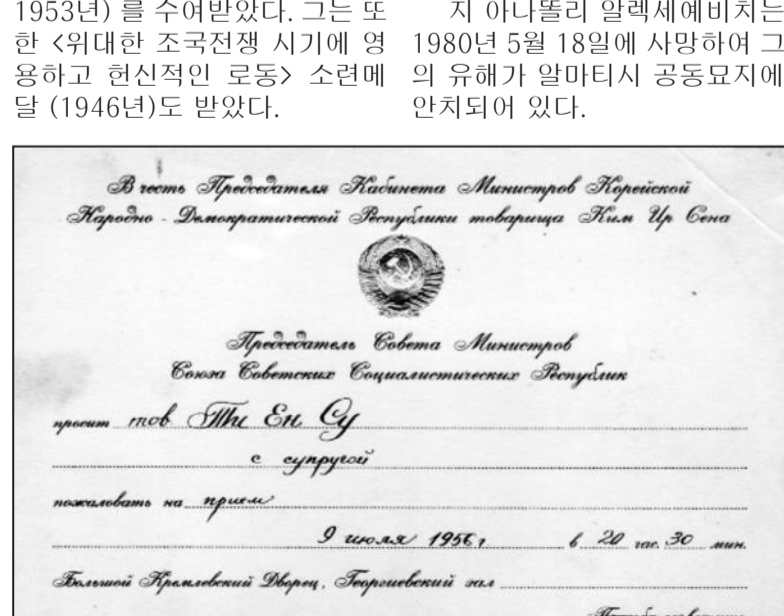 1953년) 를 수여받았다. 그는 또
한 <위대한 조국전쟁 시기에 영
용하고 헌신적인 로동> 소련메
달 (1946년)도 받았다.
지 아나똘리 알렉세예비치는
1980년 5월 18일에 사망하여 그
의 유해가 알마티시 공동묘지에
안치되어 있다.
В честь Председателя Кабинета Министров Корейской
Народно - Демократической Республики товарища Ким Ир Сена
Председатель Совета Министров
Союза Советских Социалистических Республик
просит тов Тти Ен Су
с супругой
пожаловать на прием
9 июля 1956 г в 20 час. 30 мин.
Большой Кремлевский Дворец, Георгиевский зал